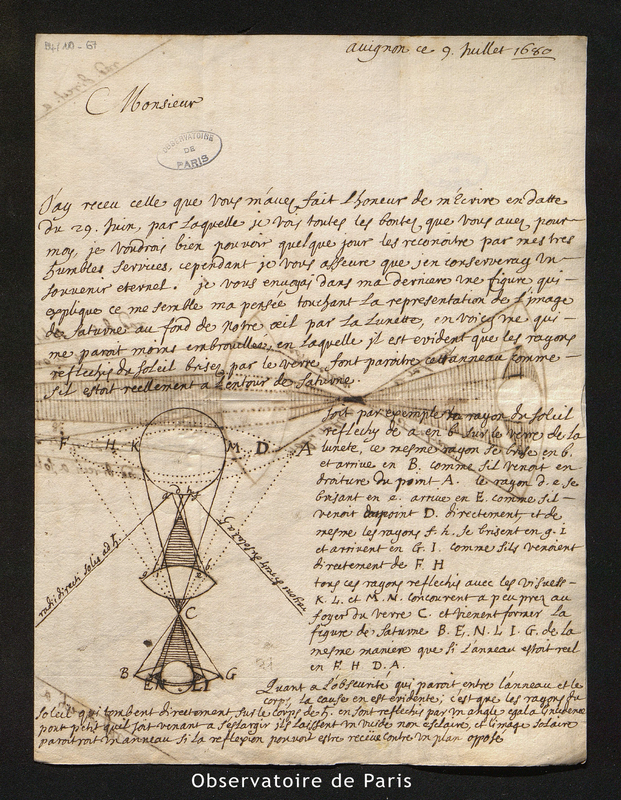 B4/10 - 67
avignon ce 9. Juillet 1680
Monsieur
OBSERVATOIRE
DE
PARIS
J'ay receu celle que vous m'aves fait l'honeur de m'écrire en datte
du 29. Juin, par laquelle je vois toutes les bontes que vous aves pour
moy, je voudrois bien pouvoir quelque jour les reconoitre par mes tres
humbles services, cependant je vous asseure que j'en conserveray un
souvenir eternel. je vous envoyai dans ma derniere une figure qui
explique ce me semble ma pensée touchant la representation de l'image
de saturne au fond de notre œil par la Lunette, en voicy une qui
me paroit moins embrouillee, en laquelle il est evident que les rayons
reflechis du soleil brisez par le verre, font paroitre cet anneau comme
s'il estoit reellement a l'entour de saturne.
soit par exemple le rayon du soleil
reflechy de a en b sur le verre de la
lunete, ce mesme rayon se brise en b.
et arrive en B. comme s'il venoit en
droiture du point A. le rayon d. e se
brisant en e. arrive en E. comme s'il
venoit du point D. directement, et de
mesme les rayons f. h. se brisent en g. i
et arrivent en G. I. comme s'ils venoient
directement de F. H
tous ces rayons reflechis avec les visuels
K. L. et M. N. concourent a peu prez au
foyer du verre C. et vienent former la
figure de saturne B. E, N. L I. G. de la
mesme maniere que si l'anneau estoit reel
en F. H D. A.
F H K M D. A
radii directi solis ad ♄.
C
B EN LI G
Quant a l'obscurité qui paroit entre l'anneau et le
corps, la cause en est evidente; c'est que les rayons du
soleil qui tombent directement sur le corps de ♄. en sont reflechis par un angle egal a l'incidence
pour petit qu'il soit venant a s'eslargir ils laissent un vuide non esclairé, et l'image solaire
paroitroit un anneau si la reflexion pouvoit estre receüe contre un plan opposé
Observatoire de Paris